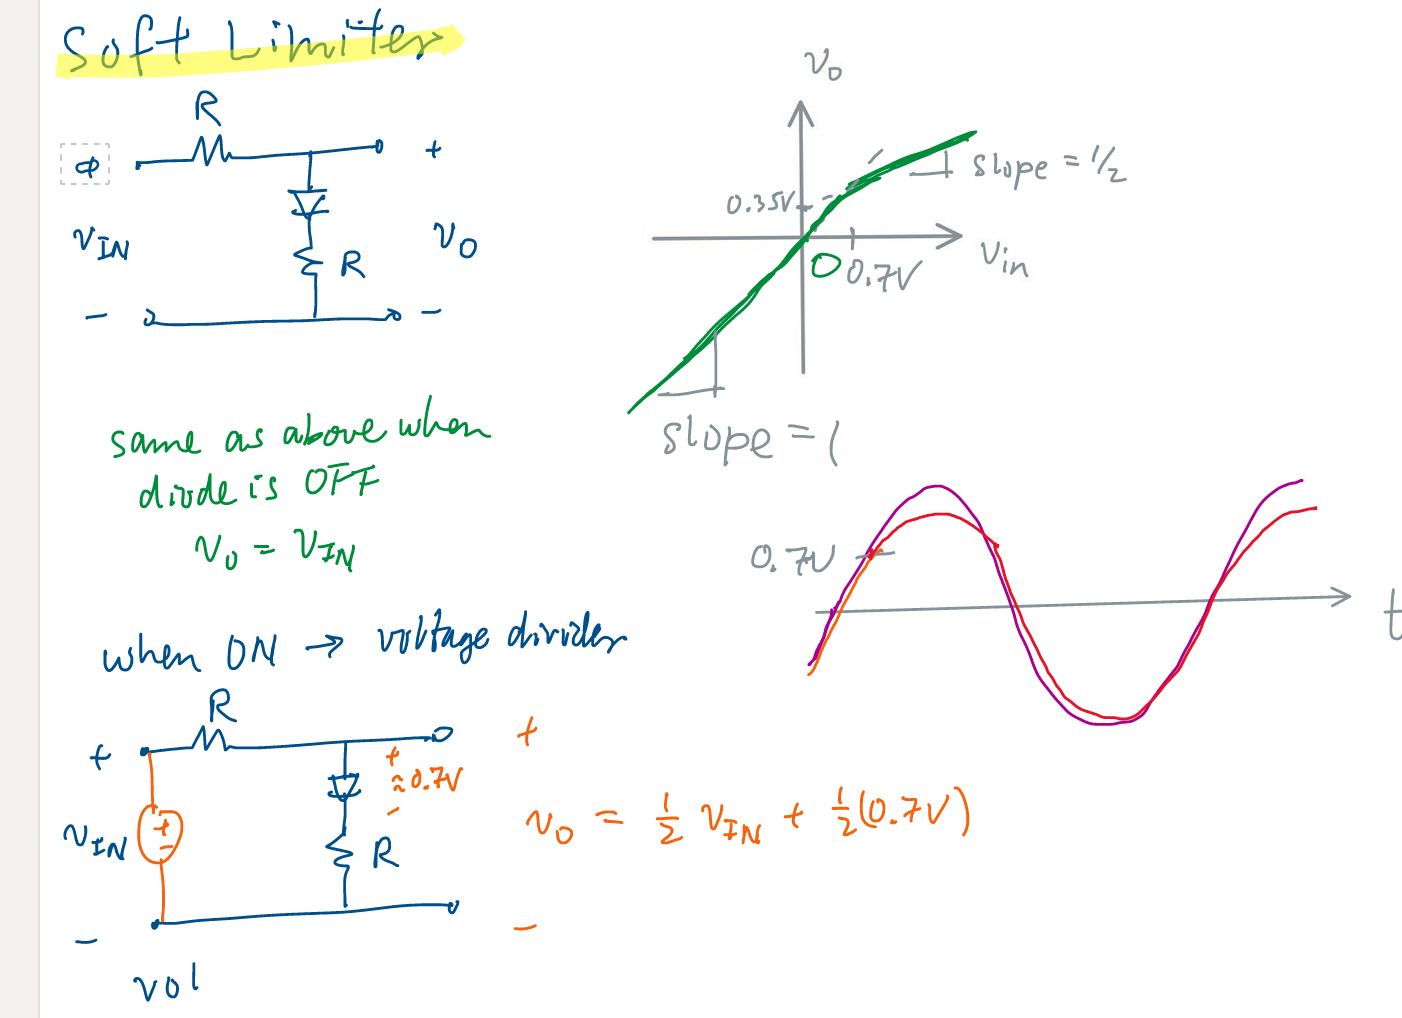 Soft Limiter
R
+
V_IN
V_O
R
-
-
V_O
0.35V
slope = 1/2
0
0.7V
V_in
slope = 1
same as above when
diode is OFF
V_O = V_IN
0.7V
t
when ON → voltage divider
R
+
+
≈0.7V
-
+
V_IN
+
-
R
V_O = 1/2 V_IN + 1/2 (0.7V)
-
-
vol